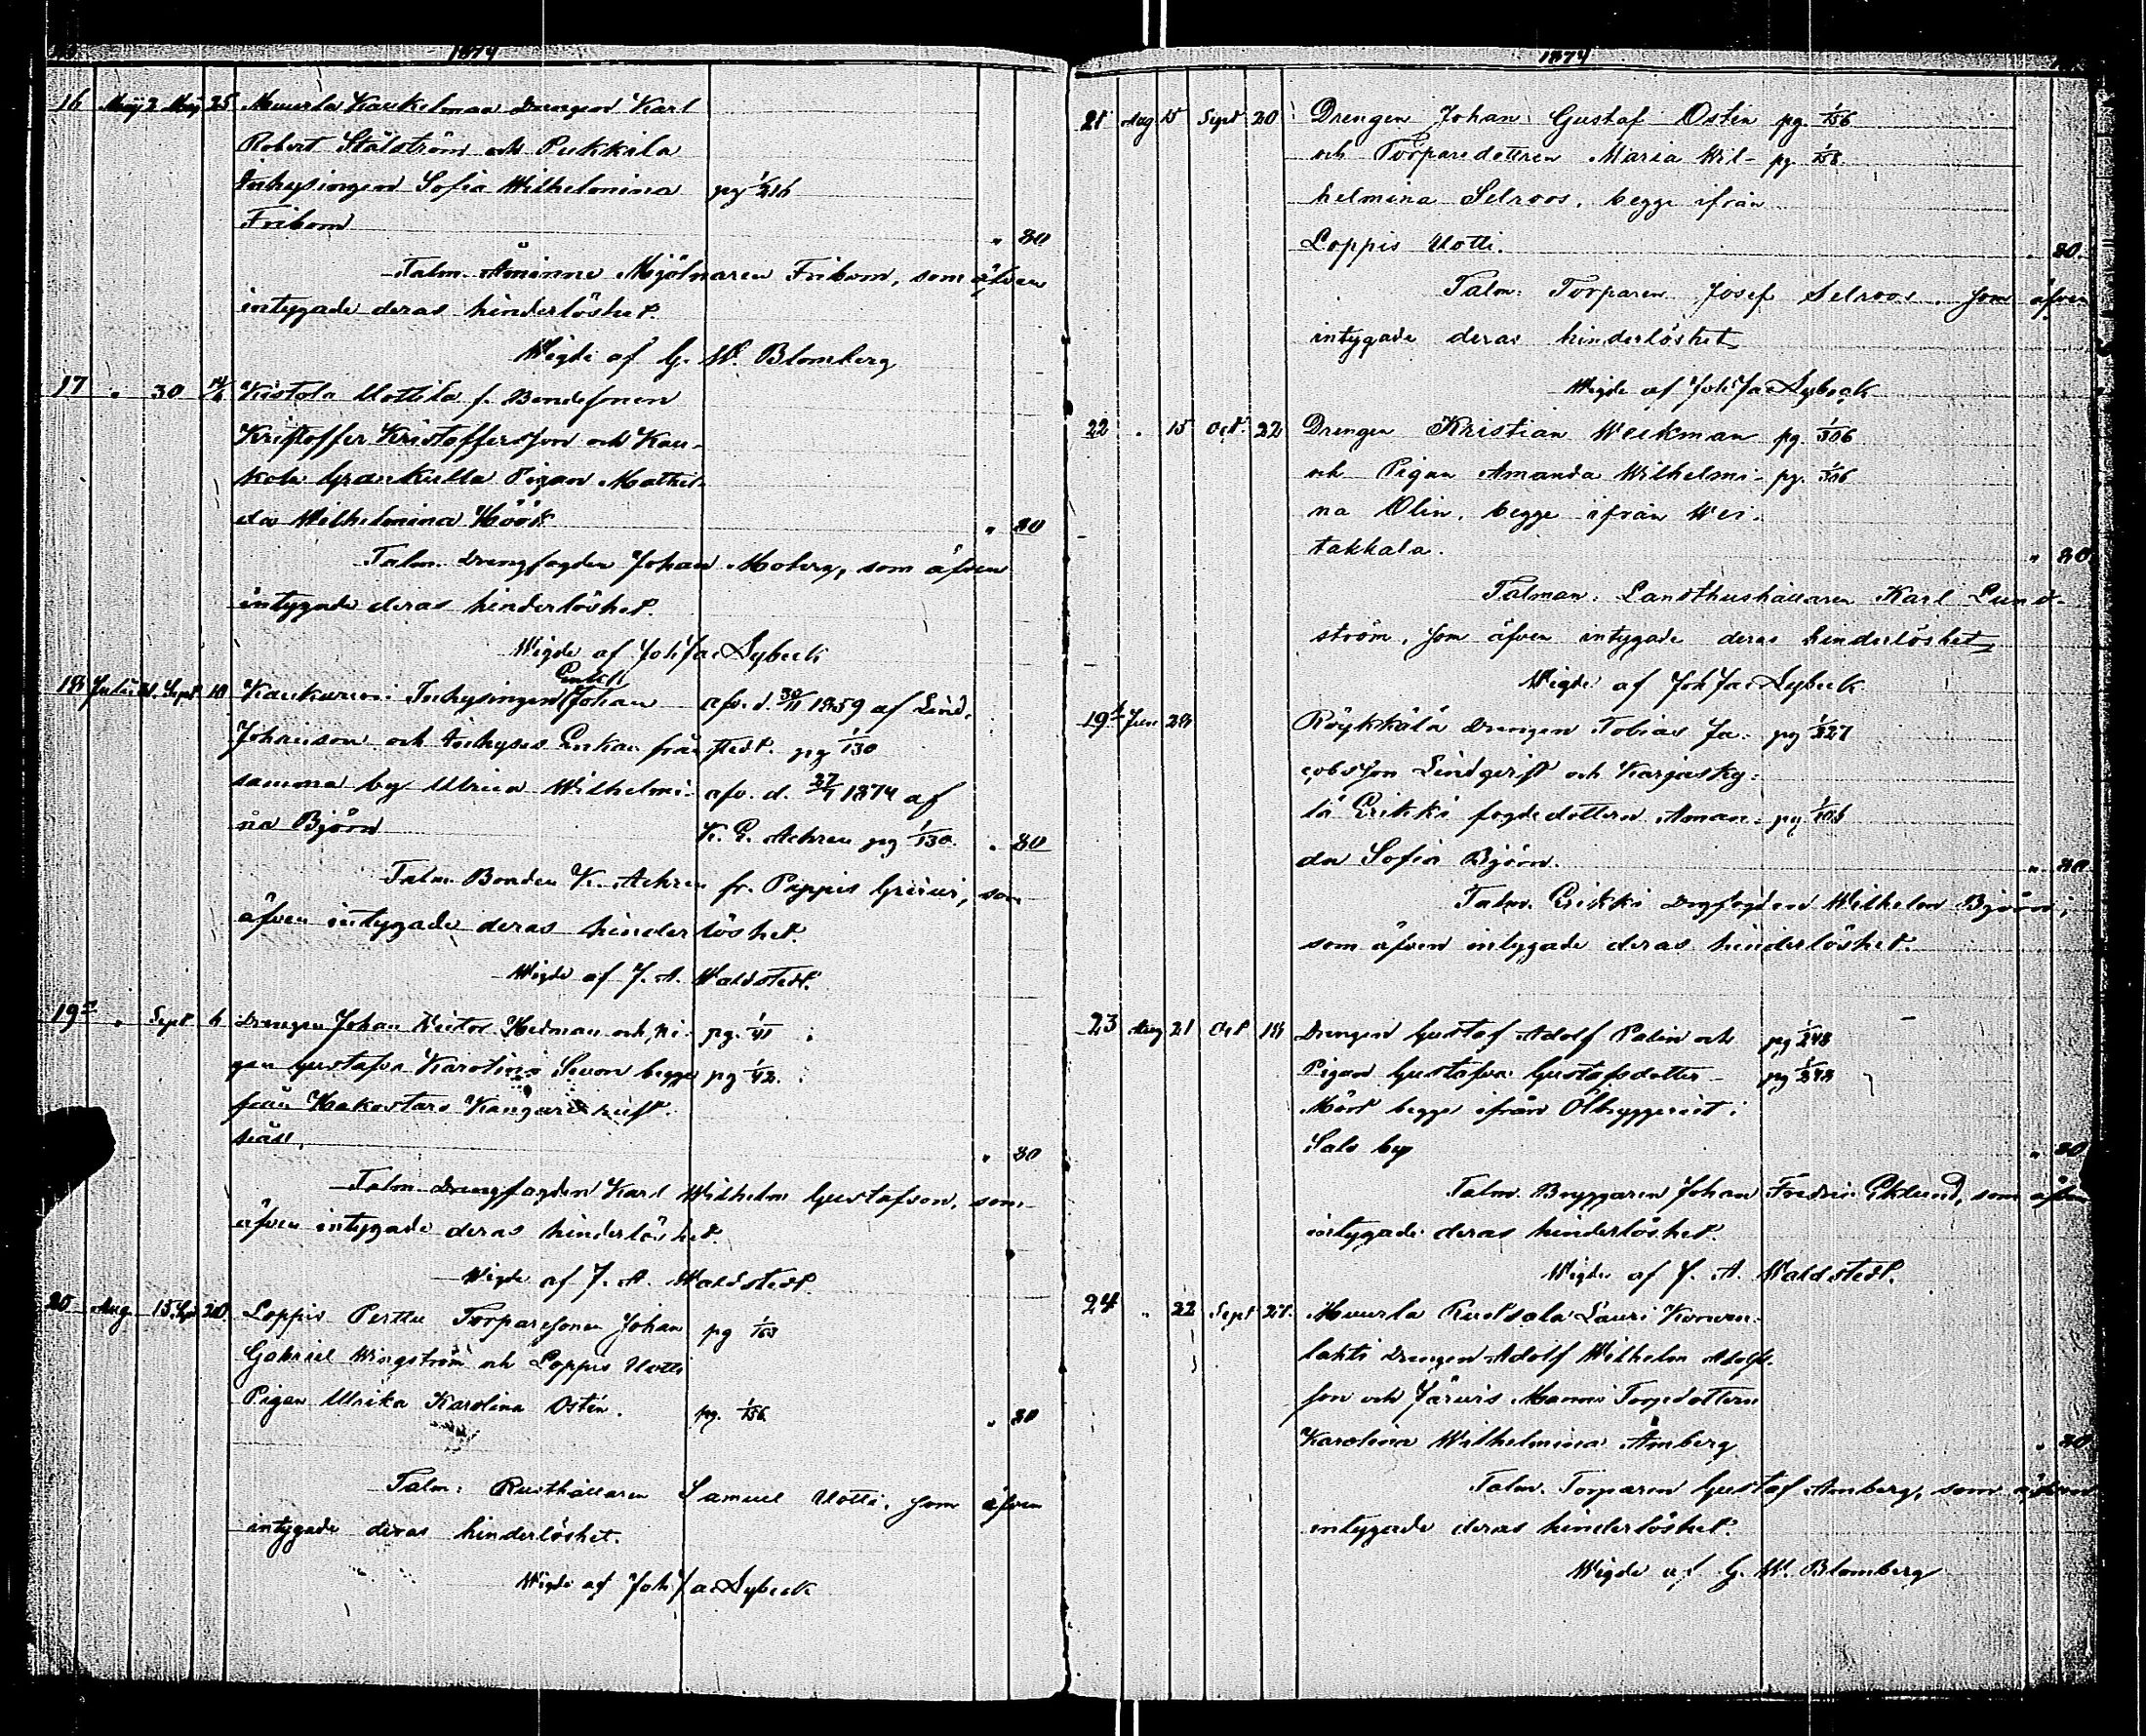 1874
16 Maij 2 Maij 25 Muurla Kaukelmaa Drengen Karl
Robert Stålström och Pukkila
Inhysingen Sofia Wilhelmina pg 1/216
Fribom " 80
Talm. Åminne Mjölnaren Fribom, som äfven
intygade deras hinderlöshet.
Wigde af G. W. Blomberg
17 " 30 14/6 Kistola Uottila f. Bondesonen
Kristoffer Kristoffersson och Kau-
kola Grankulla Pigan Mathil-
da Wilhelmina Höök " 80
Talm. Drengfogden Johan Moberg, som äfven
intygade deras hinderlöshet.
Wigde af Joh Jac Sybeck
18 Julii 21. Sept 10 Inhysingen Enkl. Johan afv. d. 30/11 1859 af Lind-
Johansson och Inhyses Enkan från stedt. pg 1/130
samma by Ulrica Wilhelmi- afv. d. 27/7 1874 af
na Björn K. E. Achren pg 1/130. " 80
Talm. Bonden K. Achren fr. Pappis, som
äfven intygade deras hinderlöshet.
Wigde af J. A. Waldstedt.
19a " Sept 6 Drengen Johan Victor Hedman och pi- pg. 1/41
gan Gustafva Karolina begge pg 1/42.
från Hakostaro
näs. " 80
Talm. Drengfogden Karl Wilhelm Gustafson, som
äfven intygade deras hinderlöshet.
Wigde af J. A. Waldstedt.
20 Aug. 15 Sept 20. Loppis Perttu Torparesonen Johan pg 1/163
Gabriel Wingström och Loppis Uotti
Pigan Ulrika Karolina Ostin. pg. 1/156 " 80
Talm: Rusthållaren Samuel Uotti, som äfven
intygade deras hinderlöshet.
Wigde af Joh Jac Sybeck
1874
21 Aug 15 Sept 20 Drengen Johan Gustaf Ostin pg. 1/156
och Torparedottren Maria Wil- pg 1/158
helmina Selroos, begge ifrån
Loppis Uotti. " 80.
Talm: Torparen Josef Selroos, som äfven
intygade deras hinderlöshet
Wigde af Joh Jac Sybeck
22 " 15 Oct. 22 Drengen Kristian Weckman pg. 1/306
och Pigan Amanda Wilhelmi- pg. 1/306
na Olin, begge ifrån Wei-
takkala. " 80
Talman: Landthushållaren Karl Lund-
ström, som äfven intygade deras hinderlöshet
Wigde af Joh Jac Sybeck
19b Jun 28 Röykkälä Drengen Tobias Ja- pg 1/327
cobsson Lindqvist och Karjasky-
lä Erikki fogdedottren Aman- pg 1/108
da Sofia Björn. " 80
Talm. Erikki Drgfogden Wilhelm Björn,
som äfven intygade deras hinderlöshet.
23 Aug 21 Oct 18 Drengen Gustaf Adolf Palin och pg 1/248
Pigan Gustafva Gustafsdotter pg 1/248
Mört begge ifrån Ölbryggeriet i
Salo by " 80
Talm. Bryggaren Johan Fredric Eklund, som äfven
intygade deras hinderlöshet.
Wigde af J. A. Waldstedt.
24 " 22 Sept 27. Muurla Ruotsala Lauri
lahti Drengen Adolf Wilhelm Adolfs-
son och Järvis Manni Torpdottren
Karolina Wilhelmina Åmberg " 80
Talm. Torparen Gustaf Amberg, som äfven
intygade deras hinderlöshet.
Wigde af G. W. Blomberg